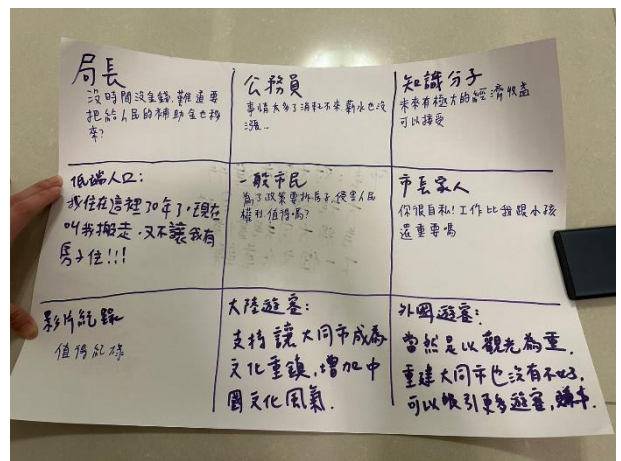 局長
沒時間沒金錢.難道要
把給人民的補助金也移
來?
公務員
事情太多了消耗不來薪水也沒
漲..
知識分子
未來有極大的經濟收益
可以接受
低端人口:
我住在這裡30年了,現在
叫我搬走.又不讓我有
房子住!!!
一般市民
為了政策要拆房子,侵害人民
權利值得嗎?
市長家人
你很自私!工作比我跟小孩
還重要嗎
影片紀錄
值得紀錄
大陸遊客:
支持讓大同市成為
文化重鎮,增加中
國文化風氣.
外國遊客:
當然是以觀光為重.
重建大同市也沒有不好,
可以吸引更多遊客,